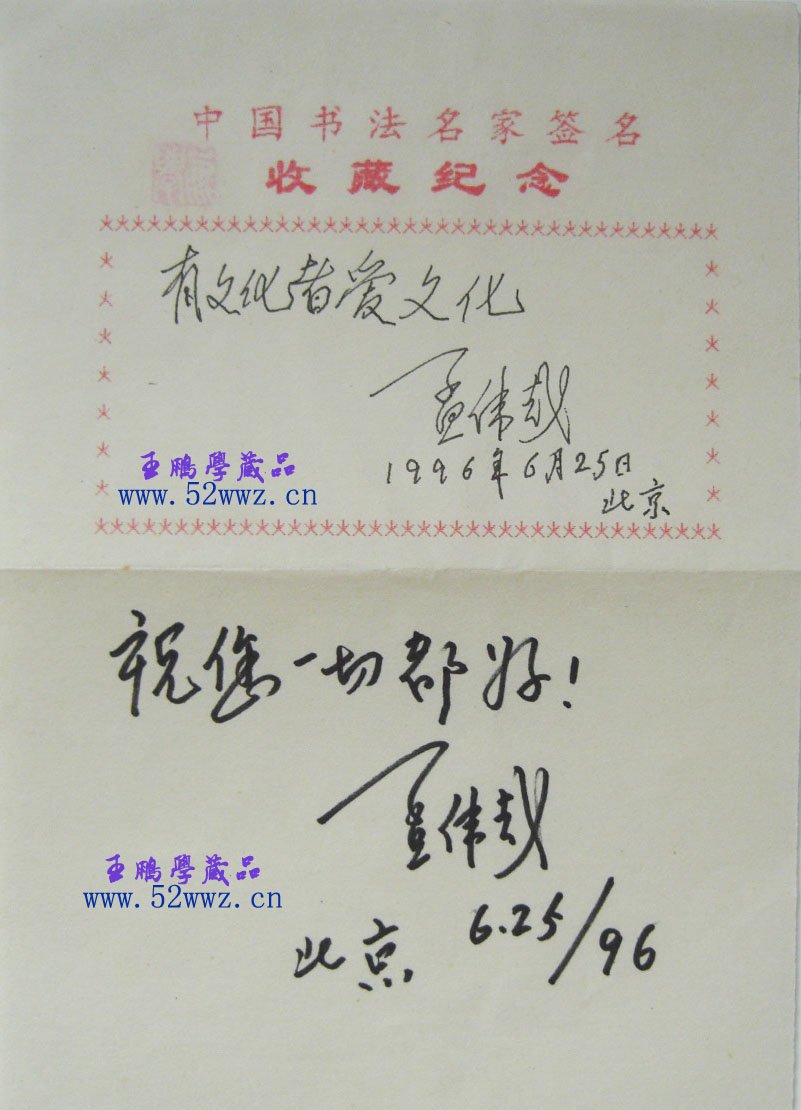 中国书法名家签名
收藏纪念
有文化者爱文化
孟伟哉
1996年6月25日
北京
王鹏學藏品
www.52wwz.cn
祝您一切都好!
孟伟哉
王鹏學藏品
www.52wwz.cn
北京 6.25/96